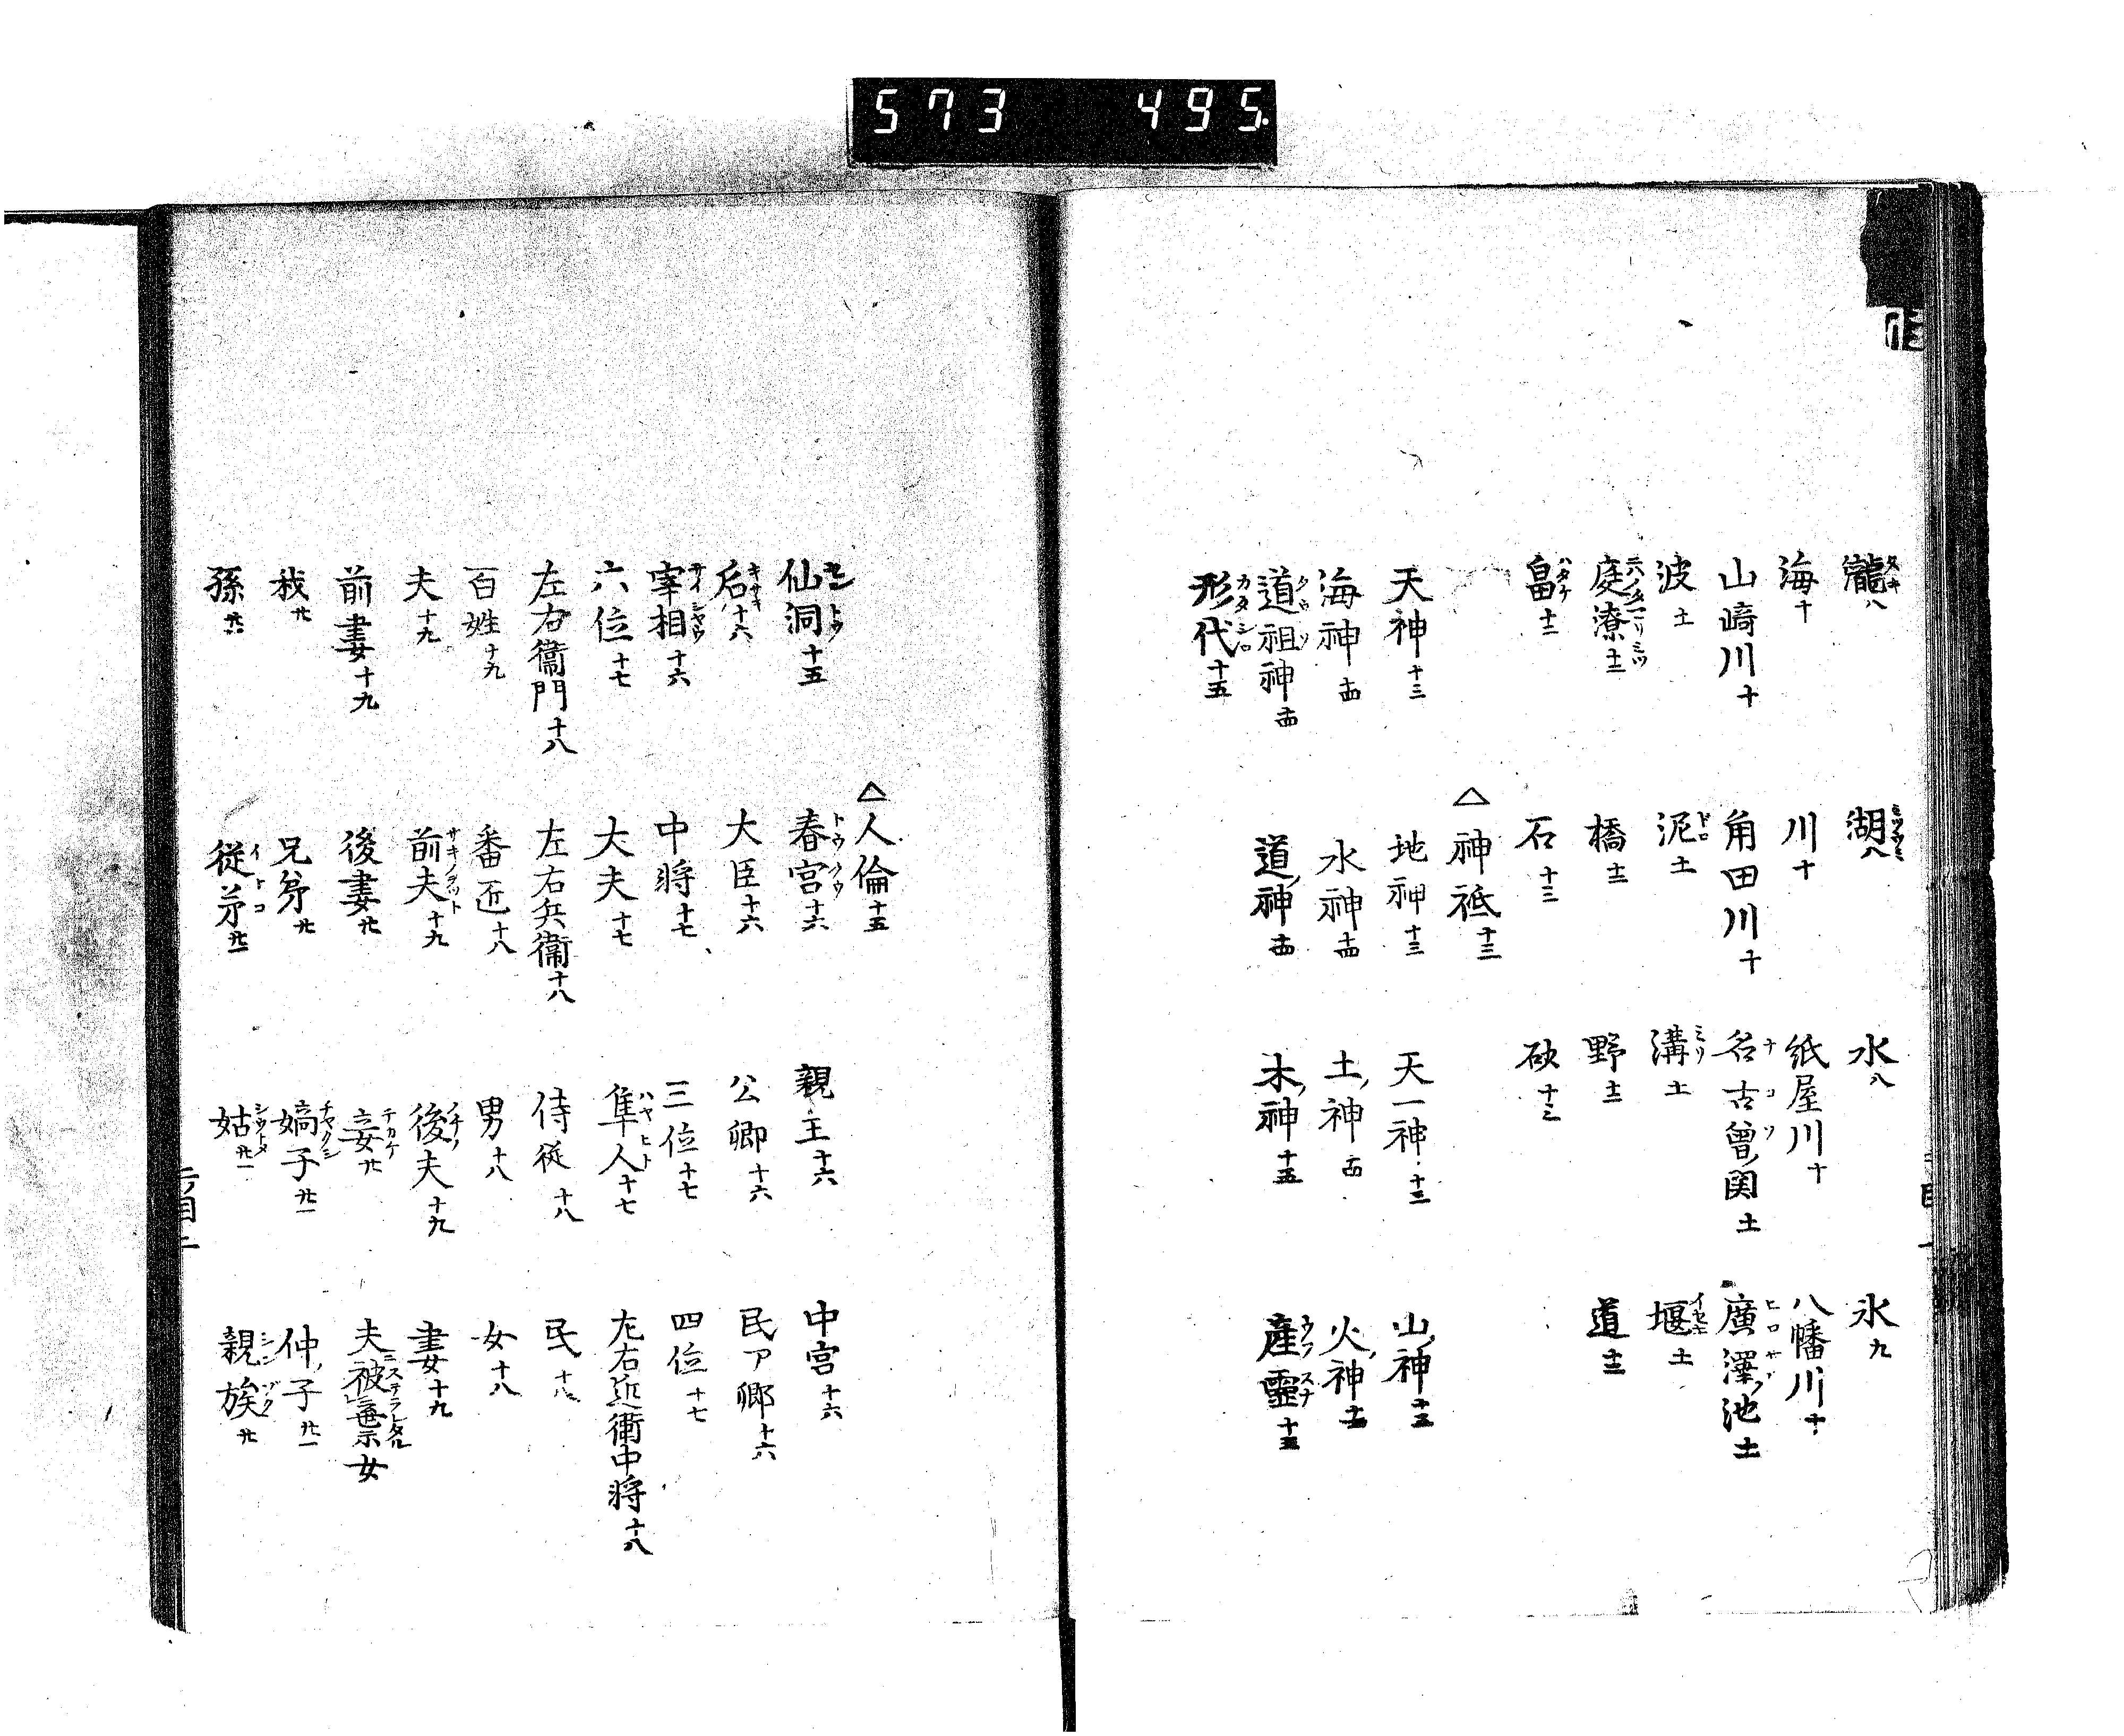 573 495.
瀧八 湖八 水八 氷九
海十 川十 紙屋川十 八幡川十
山﨑川十 角田川十 名古曾関土 廣澤池土
波土 泥土 溝土 堰土
庭潦十二 橋十二 野十二 道十二
畠十二 石十三 砍十三
△神祗十三
天神十三 地神十三 天一神十三 山神十三
海神十四 水神十四 土神十四 火神十四
道祖神十四 道神十四 木神十五 産霊十五
形代十五
△人倫十五
仙洞十五 春宮十六 親王十六 中宮十六
后十六 大臣十六 公卿十六 民ア卿十六
宰相十六 中将十七 三位十七 四位十七
六位十七 大夫十七 隼人十七 左右近衛中将十八
左右衞門十八 左右兵衞十八 侍從十八 民十八
百姓十九 番匠十八 男十八 女十八
夫十九 前夫十九 後夫十九 妻十九
前妻十九 後妻廿 妾廿 夫被棄女
我廿 兄弟廿 嫡子廿一 仲子廿一
孫 従弟廿一 姑廿一 親族廿